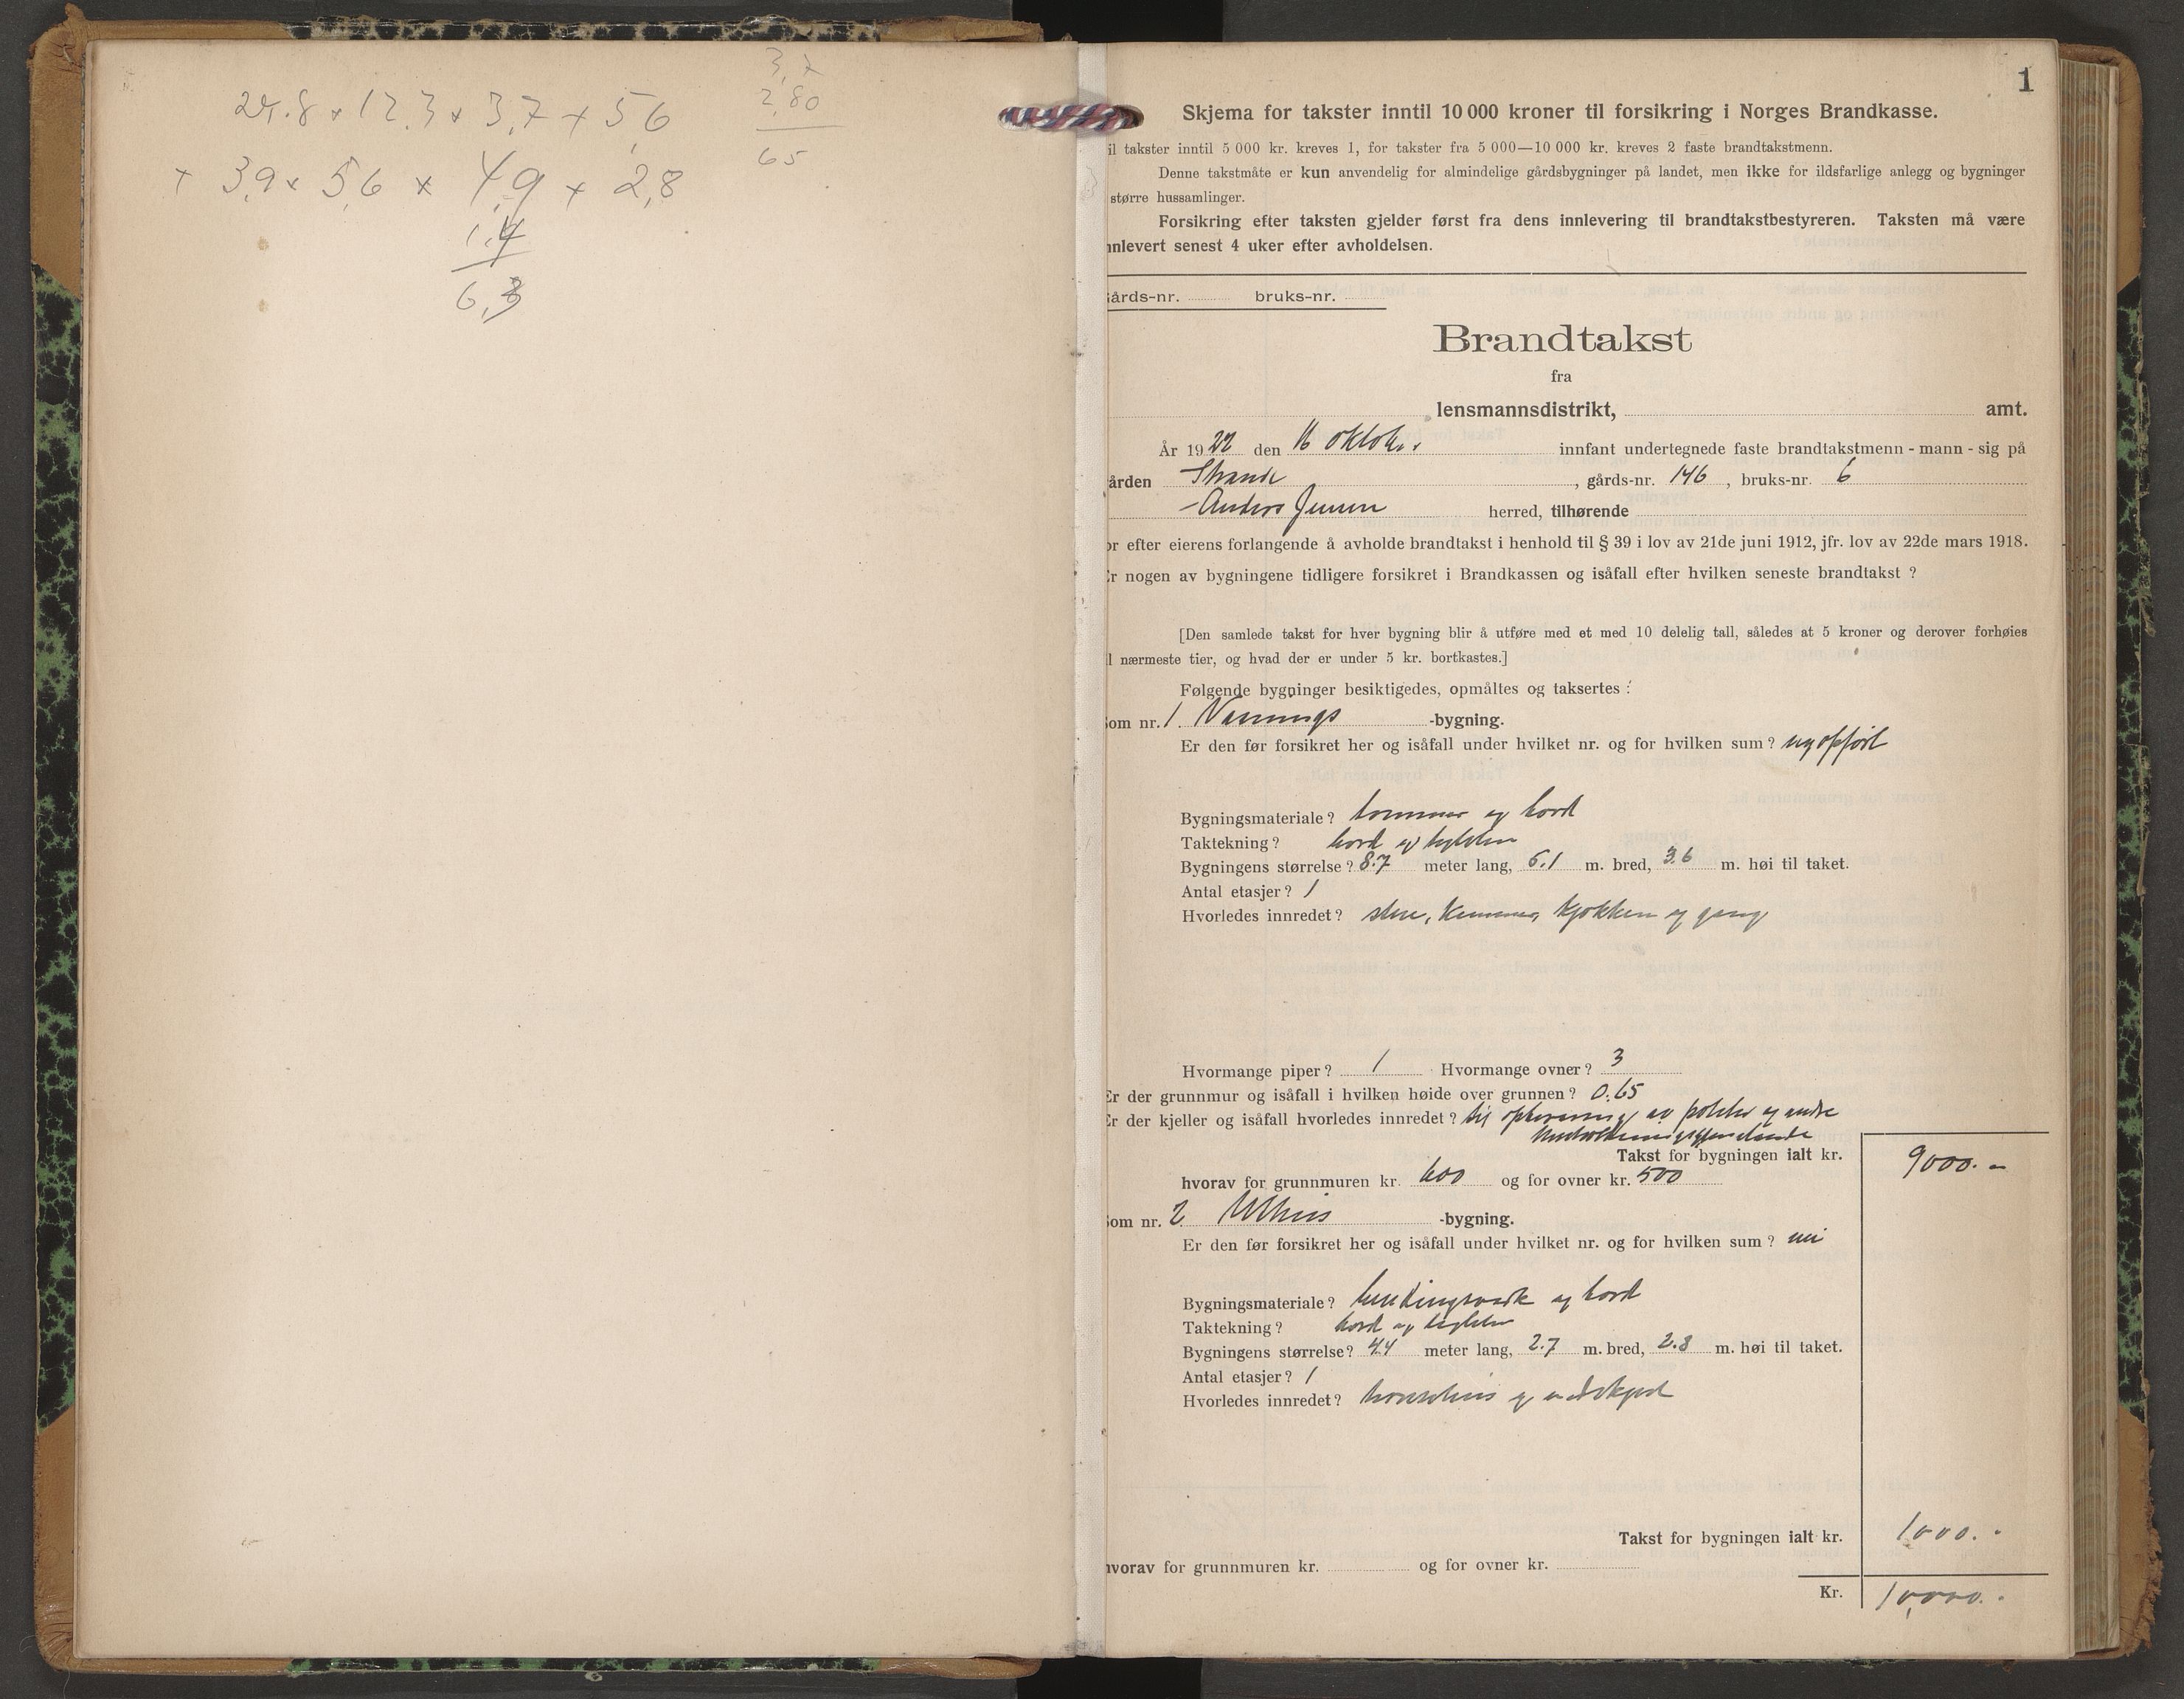 24.8 x 12.3 x 3,7 x 5,6
x 3,9 x 5,6 x 4,9 x 2,8
1,4
6,3
3,7
2,80
65
1
Skjema for takster inntil 10 000 kroner til forsikring i Norges Brandkasse.
il takster inntil 5 000 kr. kreves 1, for takster fra 5 000—10 000 kr. kreves 2 faste brandtakstmenn.
Denne takstmåte er kun anvendelig for almindelige gårdsbygninger på landet, men ikke for ildsfarlige anlegg og bygninger
større hussamlinger.
Forsikring efter taksten gjelder først fra dens innlevering til brandtakstbestyreren. Taksten må være
nnlevert senest 4 uker efter avholdelsen.
årds-nr. bruks-nr.
Brandtakst
fra
lensmannsdistrikt, amt.
År 1922 den 16 oktober innfant undertegnede faste brandtakstmenn - mann - sig på
ården Strande, gårds-nr. 146, bruks-nr. 6
Anders Jensen herred, tilhørende
or efter eierens forlangende å avholde brandtakst i henhold til § 39 i lov av 21de juni 1912, jfr. lov av 22de mars 1918.
r nogen av bygningene tidligere forsikret i Brandkassen og isåfall efter hvilken seneste brandtakst ?
[Den samlede takst for hver bygning blir å utføre med et med 10 delelig tall, således at 5 kroner og derover forhøies
l nærmeste tier, og hvad der er under 5 kr. bortkastes.]
Følgende bygninger besiktigedes, opmåltes og taksertes :
om nr. 1. Vaanings -bygning.
Er den før forsikret her og isåfall under hvilket nr. og for hvilken sum ? nyopført
Bygningsmateriale ? tømmer og bord
Taktekning ? bord og teglsten
Bygningens størrelse ? 8.7 meter lang, 6.1 m. bred, 3.6 m. høi til taket.
Antal etasjer ? 1
Hvorledes innredet ? stue, kammer, kjøkken og gang
Hvormange piper ? 1 Hvormange ovner ? 3
Er der grunnmur og isåfall i hvilken høide over grunnen ? 0.65
Er der kjeller og isåfall hvorledes innredet ? til opbevaring av poteter og andre
husholdningsgjenstande
Takst for bygningen ialt kr. 9000.-
hvorav for grunnmuren kr. 600 og for ovner kr. 500
om nr. 2 Uthus -bygning.
Er den før forsikret her og isåfall under hvilket nr. og for hvilken sum ? nei
Bygningsmateriale ? bindingsverk og bord
Taktekning ? bord og teglsten
Bygningens størrelse ? 4.4 meter lang, 2.7 m. bred, 2.8 m. høi til taket.
Antal etasjer ? 1
Hvorledes innredet ? hønsehus og vedskjul
Takst for bygningen ialt kr. 1000.-
hvorav for grunnmuren kr. og for ovner kr.
Kr. 10,000.-